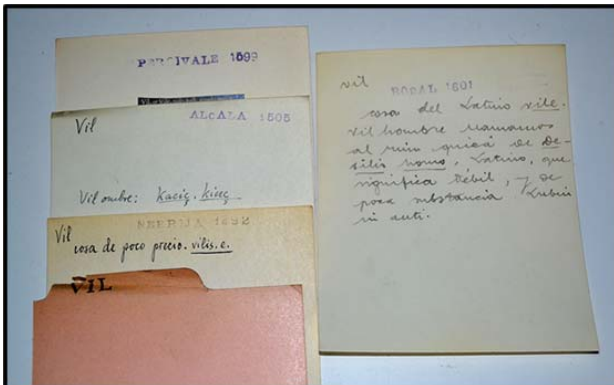 PERCIVALE 1599
Vil
ALCALA 1505
Vil ombre:
NEBRIJA 1492
Vil
cosa de poco precio. vilis.e.
VIL
vil
ROSAL 1601
cosa del Latino vile.
vil hombre llamamos
al ruin quizá de De-
bilis homo, Latino, que
significa Débil, y de
poca substancia